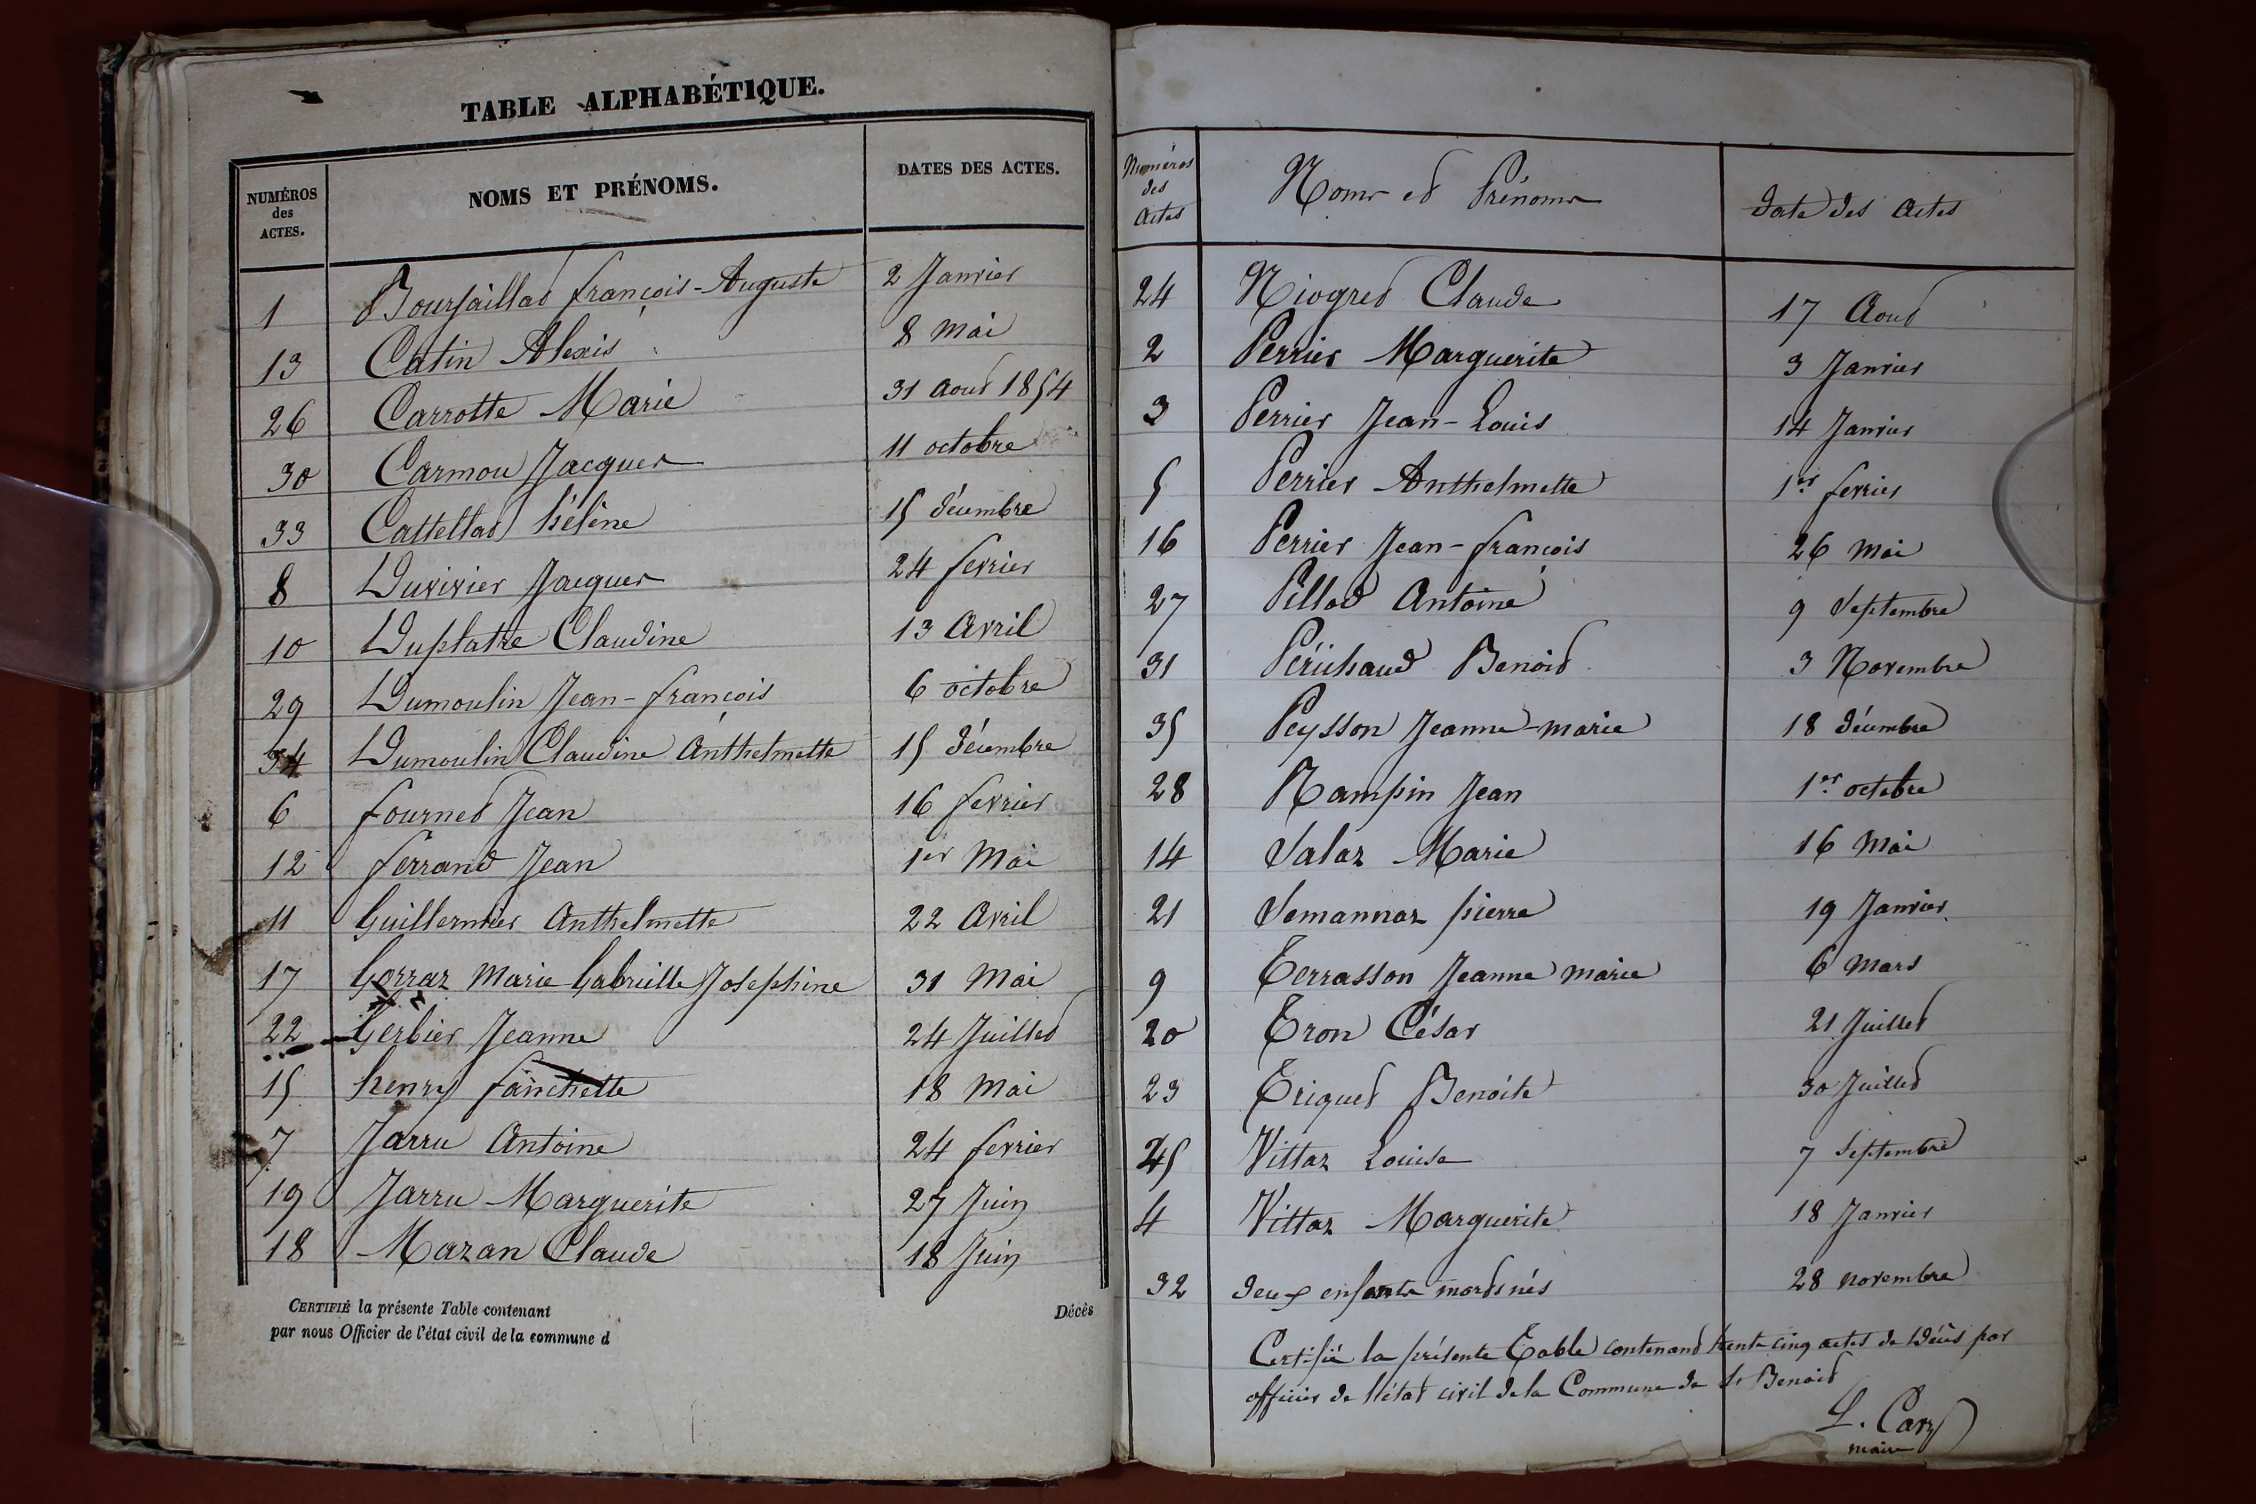 TABLE ALPHABÉTIQUE.
NUMÉROS des ACTES. NOMS ET PRÉNOMS. DATES DES ACTES.
1 Bourjaillad françois-Auguste 2 Janvier
13 Catin Alexis 8 mai
26 Carrotte Marie 31 aout 1854
30 Carmou Jacques 11 octobre
33 Cattellad hélène 15 décembre
8 Duvivier Jacques 24 fevrier
10 Duplatre Claudine 13 Avril
29 Dumoulin Jean-françois 6 octobre
34 Dumoulin Claudine Anthelmette 15 décembre
6 fournet Jean 16 fevrier
12 ferrand Jean 1er Mai
11 Guillermier Anthelmette 22 Avril
17 Gorraz Marie Gabrielle Josephine 31 Mai
22 Gerbier Jeanne 24 Juillet
15 henry fanchette 18 Mai
7 Jarru Antoine 24 fevrier
19 Jarru Marguerite 27 Juin
18 Mazan Claude 18 Juin
CERTIFIÉ la présente Table contenant Décès
par nous Officier de l'état civil de la commune d
Numéros des Actes Noms et Prénoms date des actes
24 Niogret Claude 17 Aout
2 Perrier Marguerite 3 Janvier
3 Perrier Jean-Louis 14 Janvier
5 Perrier Anthelmette 1er fevrier
16 Perrier Jean-françois 26 mai
27 Pillod Antoine 9 Septembre
31 Périchaud Benoit 3 Novembre
35 Peysson Jeanne-marie 18 décembre
28 Rampin Jean 1er octobre
14 Salaz Marie 16 Mai
21 Semannaz pierre 19 Janvier
9 Terrasson Jeanne marie 6 Mars
20 Tron César 21 Juillet
23 Triquet Benoite 30 Juillet
25 Vittaz Louise 7 Septembre
4 Vittaz Marguerite 18 Janvier
32 deux enfants morts nés 28 novembre
Certifié la présente Table contenant trente cinq actes de Décès par
officier de l'état civil de la Commune de St Benoit
L. Cary
maire